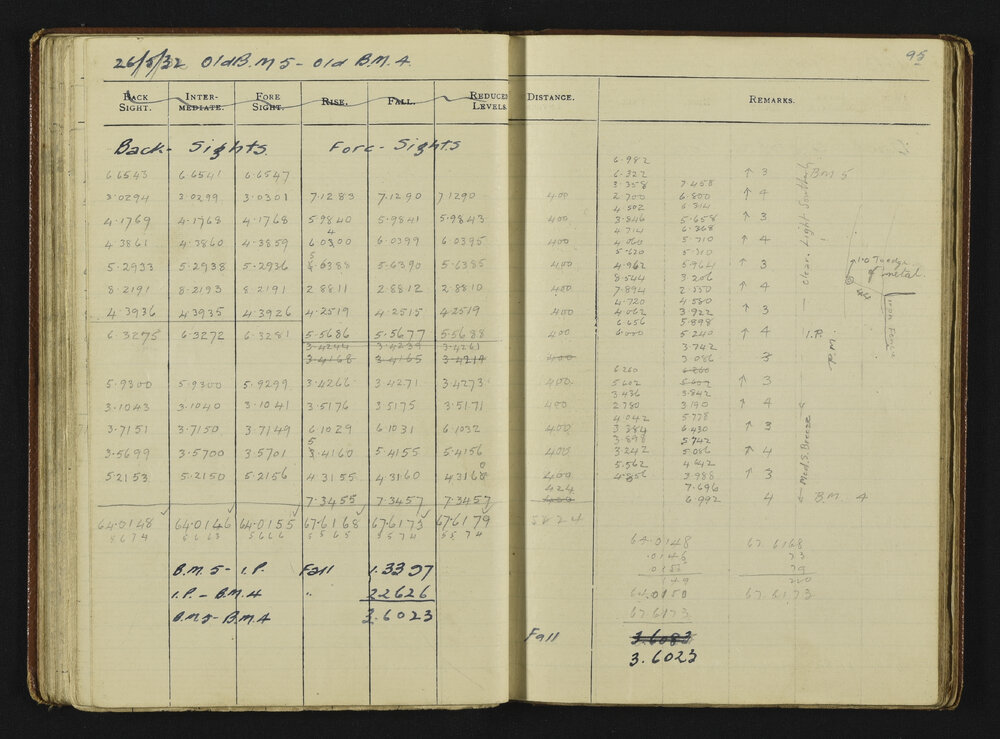 95
26/5/32 Old B.M 5 - Old B.M. 4.
BACK SIGHT. INTER-MEDIATE. FORE SIGHT. RISE. FALL. REDUCED LEVELS. DISTANCE. REMARKS.
Back - Sights Fore - Sights
6.982
6.6543 6.6541 6.6547 6.322 ↑ 3 B.M 5
3.358 7.458
3.0294 3.0299 3.0301 7.1283 7.1290 7.1290 400 2.700 6.800 ↑ 4
4.502 6.314
4.1769 4.1768 4.1768 5.9840 5.9841 5.9843 400 3.846 5.658 ↑ 3
4.714 6.368
4.3861 4.3860 4.3859 6.0300 6.0399 6.0395 400 4.060 5.710 ↑ 4
5.620
5.2933 5.2938 5.2936 5.6388 5.6390 5.6385 400 4.962 5.964 ↑ 3
8.544 3.206
8.2191 8.2193 8.2191 2.8811 2.8812 2.8810 400 7.894 2.550 ↑ 4
4.720 4.580
4.3936 4.3935 4.3926 4.2519 4.2515 4.2519 400 4.062 3.922 ↑ 3
6.656 5.898
6.3275 6.3272 6.3281 5.5686 5.5677 5.5688 400 6.000 5.240 ↑ 4 I.P.
3.4244 3.4239 3.4261 3.742
3.4168 3.4165 3.4219 400 3.086 3
6.260 6.260
5.9300 5.9300 5.9299 3.4266 3.4271 3.4273 400 5.602 5.602 ↑ 3
3.436 3.842
3.1043 3.1040 3.1041 3.5176 3.5175 3.5171 400 2.780 3.190 ↑ 4
4.042 5.778
3.7151 3.7150 3.7149 6.1029 6.1031 6.1032 400 3.384 6.430 ↑ 3
3.898 5.742
3.5699 3.5700 3.5701 5.4160 5.4155 5.4156 400 3.242 5.086 ↑ 4
5.562 4.642
5.2153 5.2150 5.2156 4.3155 4.3160 4.3160 400 4.856 3.988 ↑ 3
424 7.696
7.3455 7.3457 7.3457 400 6.992 4 B.M. 4
64.0148 64.0146 64.0155 67.6168 67.6173 67.6179 5224
Clear. Light Southerly
P.M.
Med. S. Breeze
of metal.
Iron Fence
64.0148 67.6168
.0146 73
.0155 79
149 220
64.0150 67.6173
67.6173
B.M. 5 - I.P. Fall 1.3397
I.P. - B.M. 4 " 2.2626
B.M 5 - B.M. 4 3.6023
Fall 3.6083
3.6023